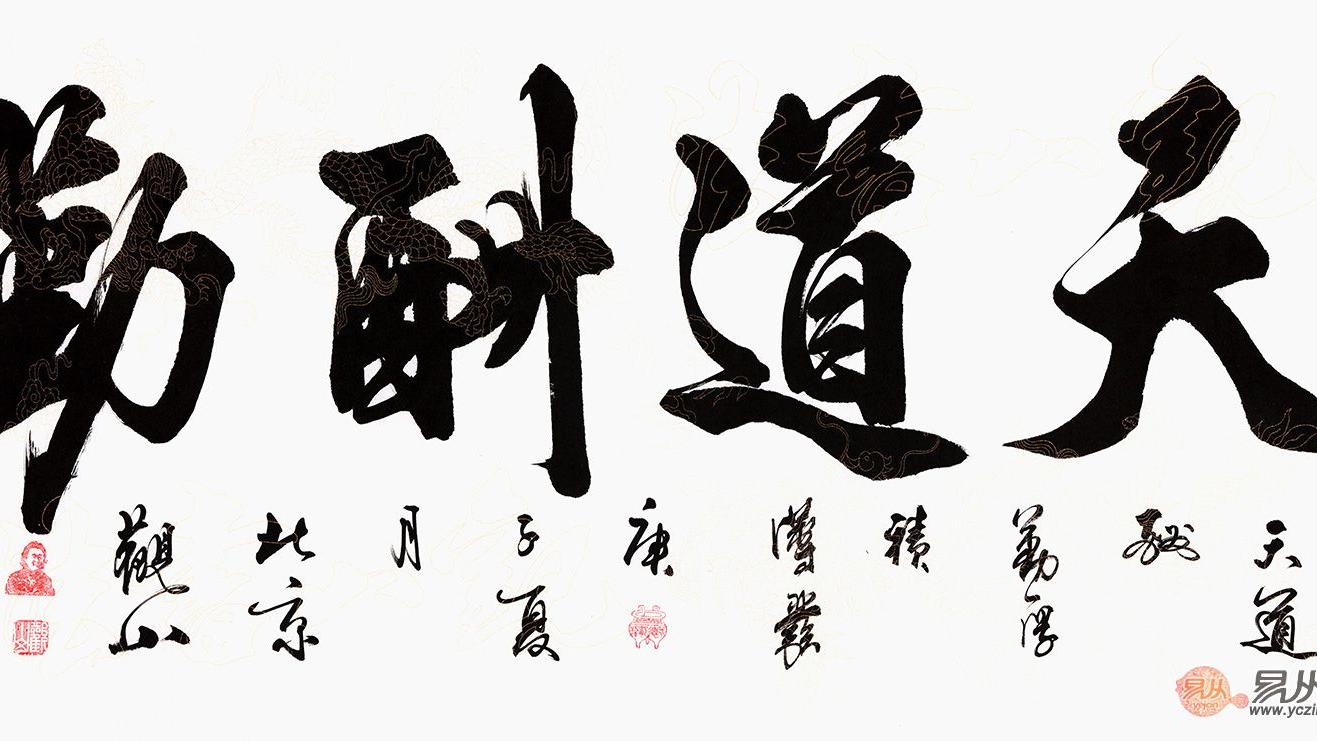 天道酬勤
天道
酬
勤厚
積
薄發
庚
子夏
月
北京
觀山
易从
易从
www.yczi